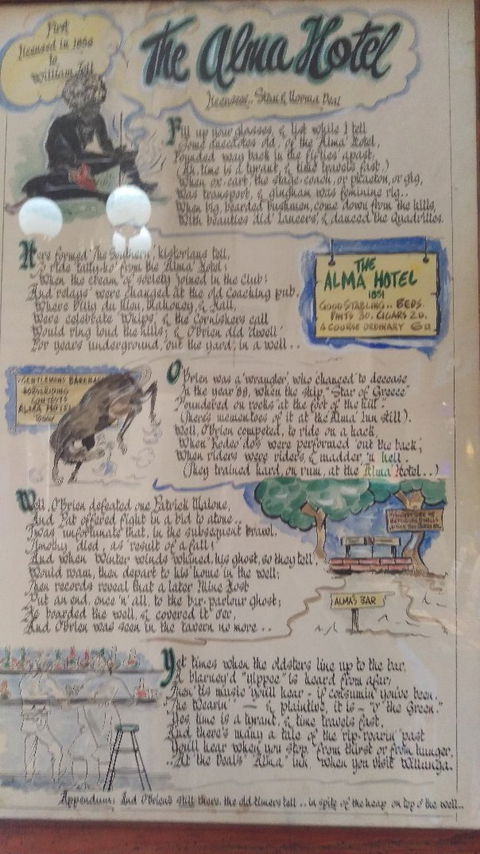 First
licensed in 1856
to
William
The Alma Hotel
Licensees.. Norma Deal
Fill up your glasses, & list while I tell
Some anecdotes old, of the 'Alma' Hotel,
Founded way back in the fifties apast,
(Ah, time is a tyrant, & time travels fast.)
When ox-cart, the stage-coach, or phaeton, or gig,
Was transport, & gingham was feminine rig..
When big, bearded bushmen, come down from the hills,
With beauties did 'Lancers', & danced the Quadrilles.
Here formed 'The Southern' historians tell,
To ride 'tally-ho' from the 'Alma' Hotel;
When the cream of society joined in the club;
And relays were changed at the old coaching pub.
Where Billy du Hou, Mahoney, & Hall,
Were celebrate 'Whips', & the Cornishers call
Would ring loud the hills; & O'Brien did 'dwell'
For years underground, out the yard, in a well..
THE
ALMA HOTEL
1851
GOOD STABLING.. BEDS.
PINTS 3D. CIGARS 2D.
4 COURSE ORDINARY 6D
GENTLEMENS BAREBACK
RODRIDING
CONTESTS
ALMA HOTEL
O'Brien was a 'wrangler', who changed to decease
In the year '88, when the ship "Star of Greece"
Foundered on rocks at the foot of the hill..
(Here's mementoes of it at the Alma Inn still).
Well, O'Brien competed, to ride on a hack,
When 'Rodeo do's were performed 'out the back;
When riders were riders, & madder 'n hell..
(They trained hard, on rum, at the 'Alma' Hotel..)
Well, O'Brien defeated one Patrick Malone,
And Pat offered fight in a bid to atone..
'Twas unfortunate that, in the subsequent brawl,
Timothy died, as result of a fall;
And when Winter winds whined, his ghost, so they tell,
Would roam, then depart to his home in the well;
Then records reveal that a later Mine Host
Put an end, once 'n' all, to the bar-parlour ghost;
He boarded the well, & covered it o'er,
And O'Brien was seen in the tavern no more..
ALMA'S BAR
Yet times when the oldsters line up to the bar,
A blarney'd "yippee" is heard from afar;
Then 'tis music you'll hear - if consumin' you've been.
"The Wearin' — & plaintive, it is - 'o' the Green."
Yes time is a tyrant, & time travels fast,
And there's many a tale of the rip-roarin' past
You'll hear when you stop, from thirst or from hunger,
..At the Deals' 'Alma' Inn when you visit Willunga.
Appendum: And O'Brien's still there, the old timers tell.. in spite of the heap on top o' the well..